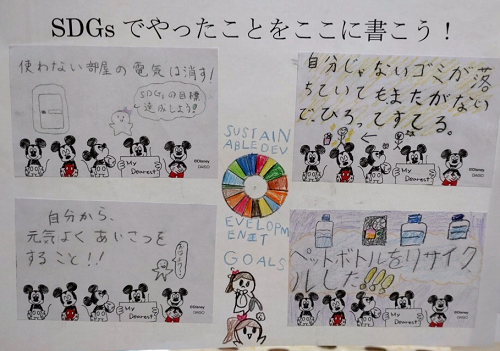 SDGsでやったことをここに書こう！
使わない部屋の電気は消す！
SDGsの目標
達成しよう!!
My
Dearest
©Disney
DAISO
自分じゃないゴミが落
ちていてもまたがない
で、ひろってすてる。
My
Dearest
©Disney
DAISO
SUSTAIN
ABLE DEV
ELOPM
ENT
GOALS
自分から、
元気よくあいさつを
すること！！
My
Dearest
©Disney
DAISO
ペットボトルをリサイク
ルした!!!
My
Dearest
©Disney
DAISO